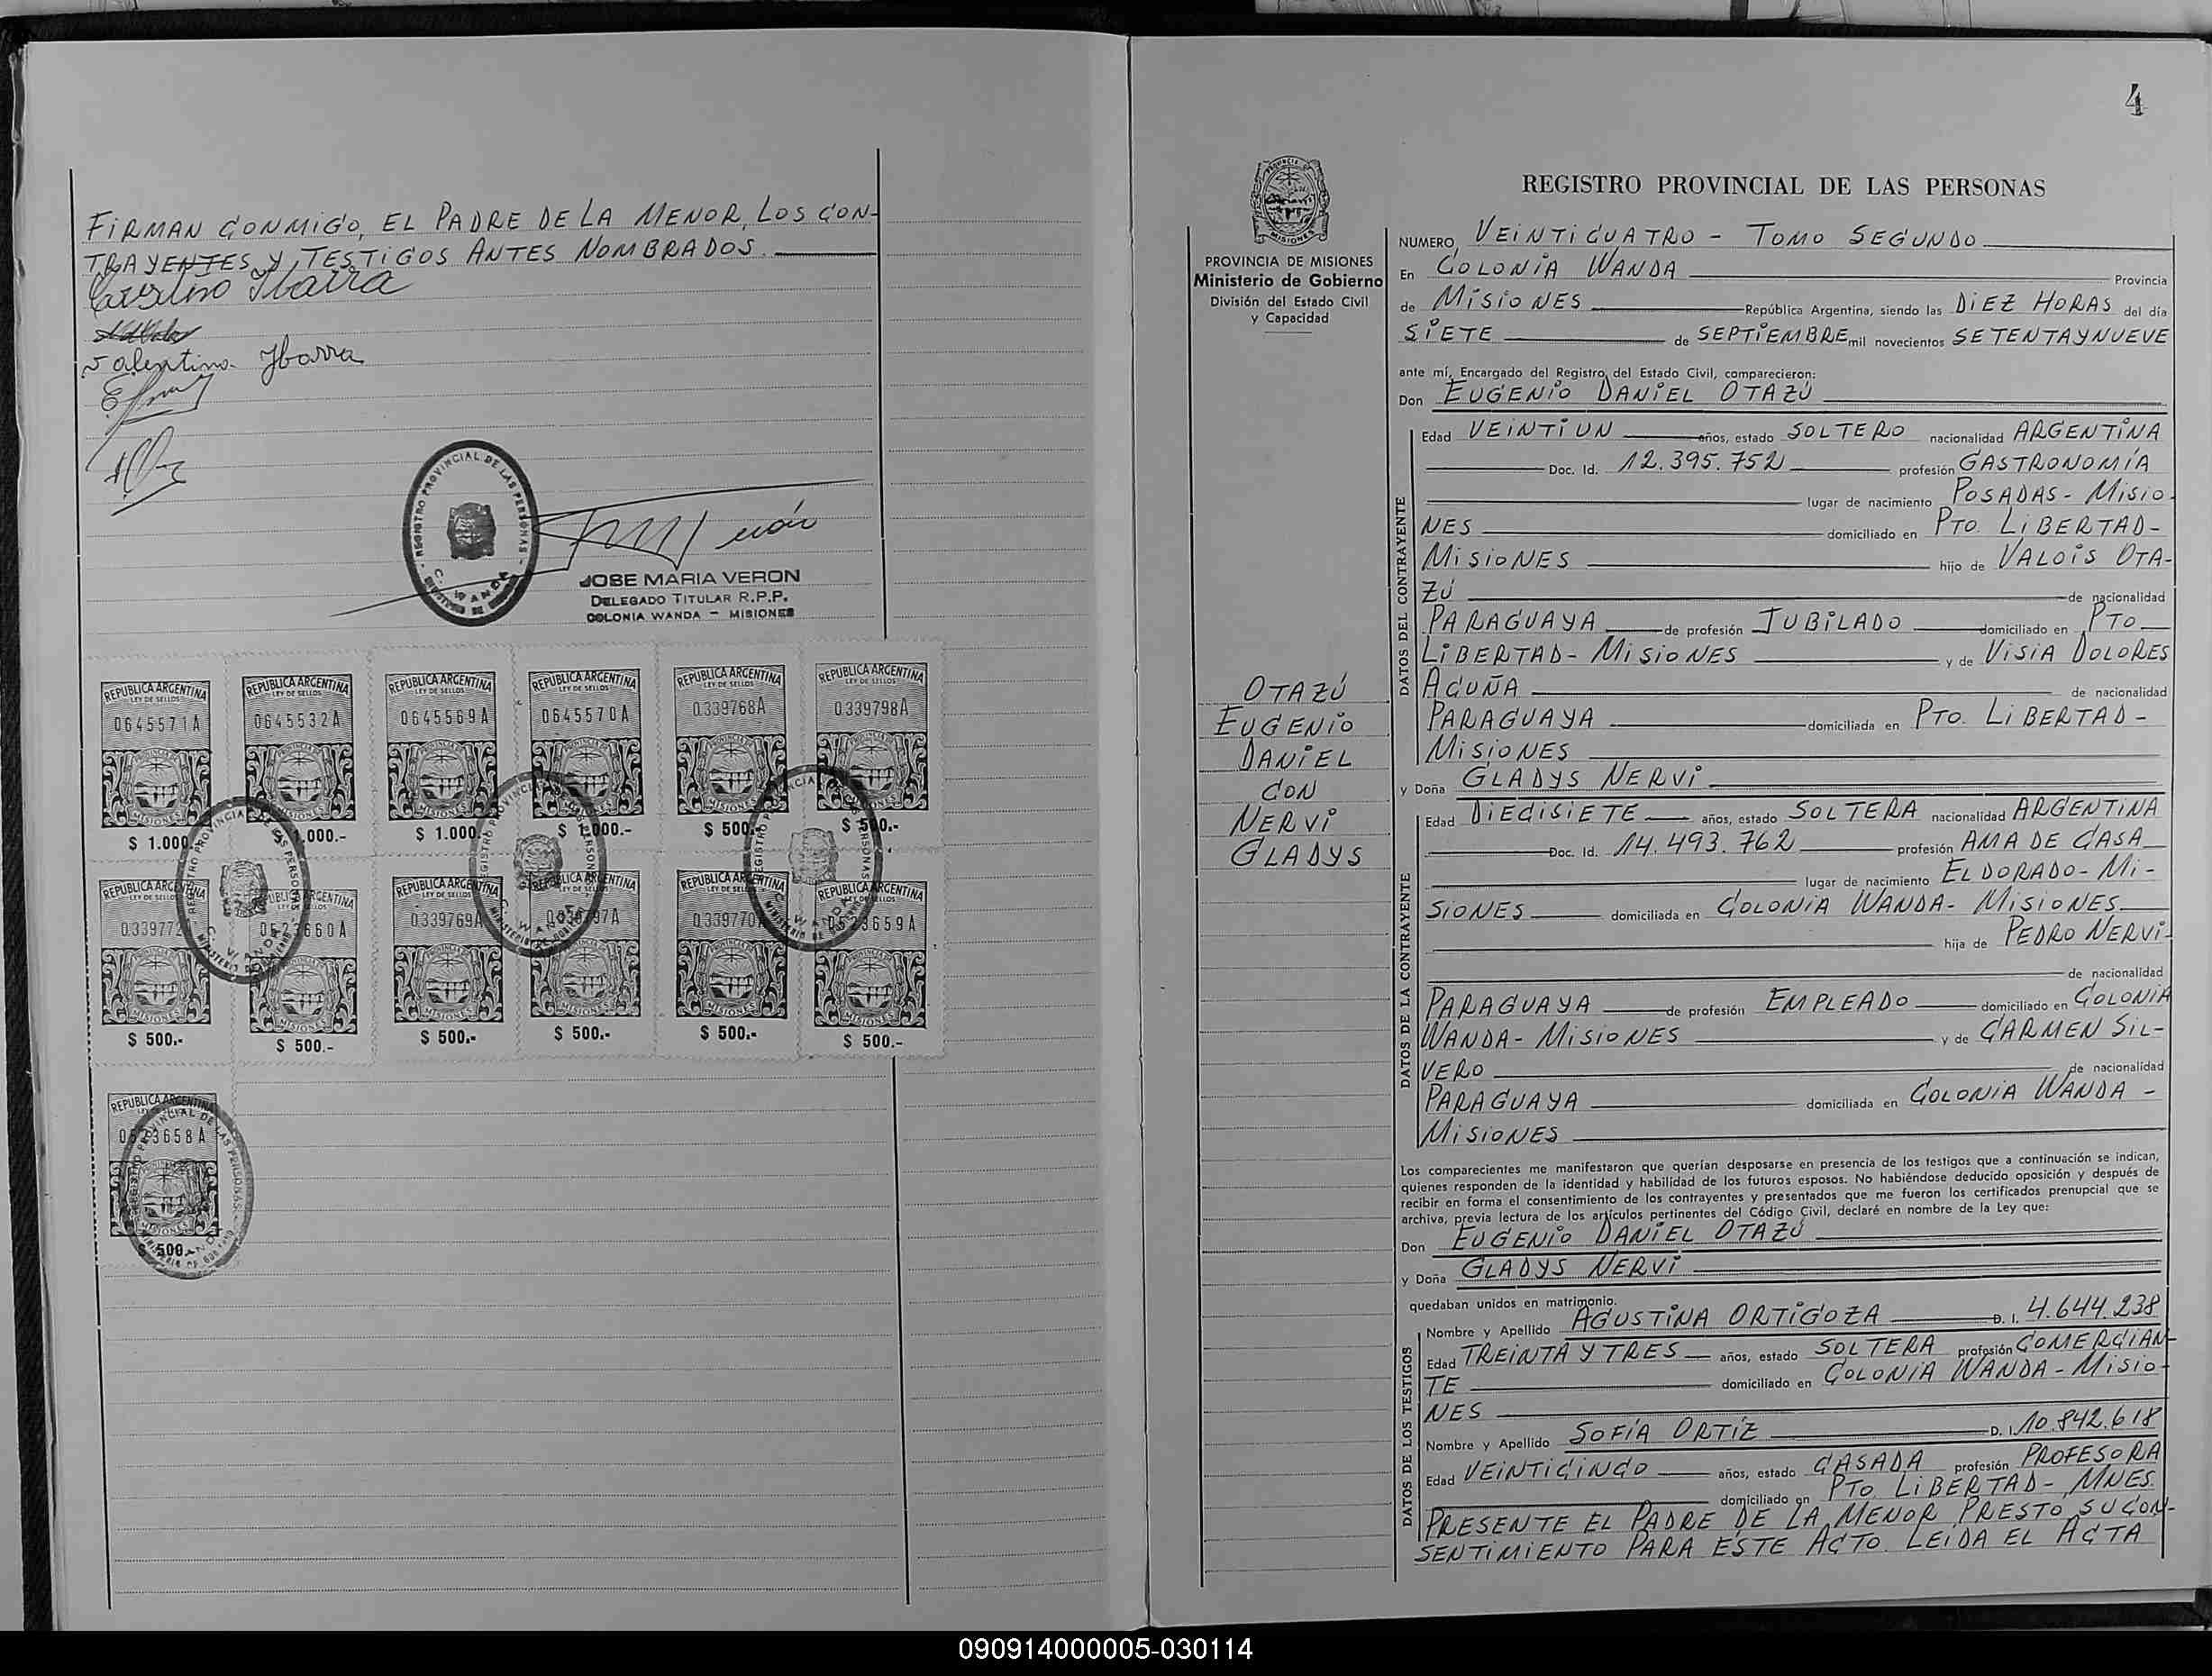 FIRMAN CONMIGO, EL PADRE DE LA MENOR, LOS CON-
TRAYENTES Y TESTIGOS ANTES NOMBRADOS.
Ibarra
Valentina Ibarra
REGISTRO PROVINCIAL DE LAS PERSONAS
C. WANDA
JOSE MARIA VERON
DELEGADO TITULAR R.P.P.
COLONIA WANDA - MISIONES
REPUBLICA ARGENTINA REPUBLICA ARGENTINA REPUBLICA ARGENTINA REPUBLICA ARGENTINA REPUBLICA ARGENTINA REPUBLICA ARGENTINA
LEY DE SELLOS LEY DE SELLOS LEY DE SELLOS LEY DE SELLOS LEY DE SELLOS LEY DE SELLOS
0645571A 0645532A 0645569A 0645570A 0339768A 0339798A
MISIONES MISIONES MISIONES MISIONES MISIONES MISIONES
$ 1.000 1.000.- $ 1.000 $ 1.000.- $ 500.- $ 500.-
REPUBLICA ARGENTINA REPUBLICA ARGENTINA REPUBLICA ARGENTINA REPUBLICA ARGENTINA REPUBLICA ARGENTINA REPUBLICA ARGENTINA
033977 0523660A 0339769A 0339770 0523659A
MISIONES MISIONES MISIONES MISIONES MISIONES MISIONES
$ 500.- $ 500.- $ 500.- $ 500.- $ 500.- $ 500.-
REPUBLICA ARGENTINA
0523658A
MISIONES
$ 500.-
4
PROVINCIA DE MISIONES
Ministerio de Gobierno
División del Estado Civil
y Capacidad
OTAZÚ
EUGENIO
DANIEL
CON
NERVI
GLADYS
REGISTRO PROVINCIAL DE LAS PERSONAS
NUMERO, VEINTICUATRO - TOMO SEGUNDO
En COLONIA WANDA Provincia
de MISIONES República Argentina, siendo las DIEZ HORAS del día
SIETE de SEPTIEMBRE mil novecientos SETENTAYNUEVE
ante mí, Encargado del Registro del Estado Civil, comparecieron:
Don EUGENIO DANIEL OTAZÚ
DATOS DEL CONTRAYENTE
Edad VEINTIUN años, estado SOLTERO nacionalidad ARGENTINA
Doc. Id. 12.395.752 profesión GASTRONOMÍA
lugar de nacimiento POSADAS - MISIO-
NES domiciliado en PTO. LIBERTAD -
MISIONES hijo de VALOIS OTA-
ZÚ de nacionalidad
PARAGUAYA de profesión JUBILADO domiciliado en PTO
LIBERTAD - MISIONES y de VISIA DOLORES
ACUÑA de nacionalidad
PARAGUAYA domiciliada en PTO. LIBERTAD -
MISIONES
y Doña GLADYS NERVI
DATOS DE LA CONTRAYENTE
Edad DIECISIETE años, estado SOLTERA nacionalidad ARGENTINA
Doc. Id. 14.493.762 profesión AMA DE CASA
lugar de nacimiento ELDORADO - MI-
SIONES domiciliada en COLONIA WANDA - MISIONES
hija de PEDRO NERVI
de nacionalidad
PARAGUAYA de profesión EMPLEADO domiciliado en COLONIA
WANDA - MISIONES y de CARMEN SIL-
VERO de nacionalidad
PARAGUAYA domiciliada en COLONIA WANDA -
MISIONES
Los comparecientes me manifestaron que querían desposarse en presencia de los testigos que a continuación se indican,
quienes responden de la identidad y habilidad de los futuros esposos. No habiéndose deducido oposición y después de
recibir en forma el consentimiento de los contrayentes y presentados que me fueron los certificados prenupcial que se
archiva, previa lectura de los artículos pertinentes del Código Civil, declaré en nombre de la Ley que:
Don EUGENIO DANIEL OTAZÚ
y Doña GLADYS NERVI
quedaban unidos en matrimonio.
DATOS DE LOS TESTIGOS
Nombre y Apellido AGUSTINA ORTIGOZA D. I. 4.644.238
Edad TREINTA Y TRES años, estado SOLTERA profesión COMERCIAN-
TE domiciliado en COLONIA WANDA - MISIO-
NES
Nombre y Apellido SOFÍA ORTIZ D. I. 10.842.618
Edad VEINTICINCO años, estado CASADA profesión PROFESORA
domiciliado en PTO. LIBERTAD - MNES.
PRESENTE EL PADRE DE LA MENOR PRESTO SU CON-
SENTIMIENTO PARA ESTE ACTO. LEIDA EL ACTA
090914000005-030114